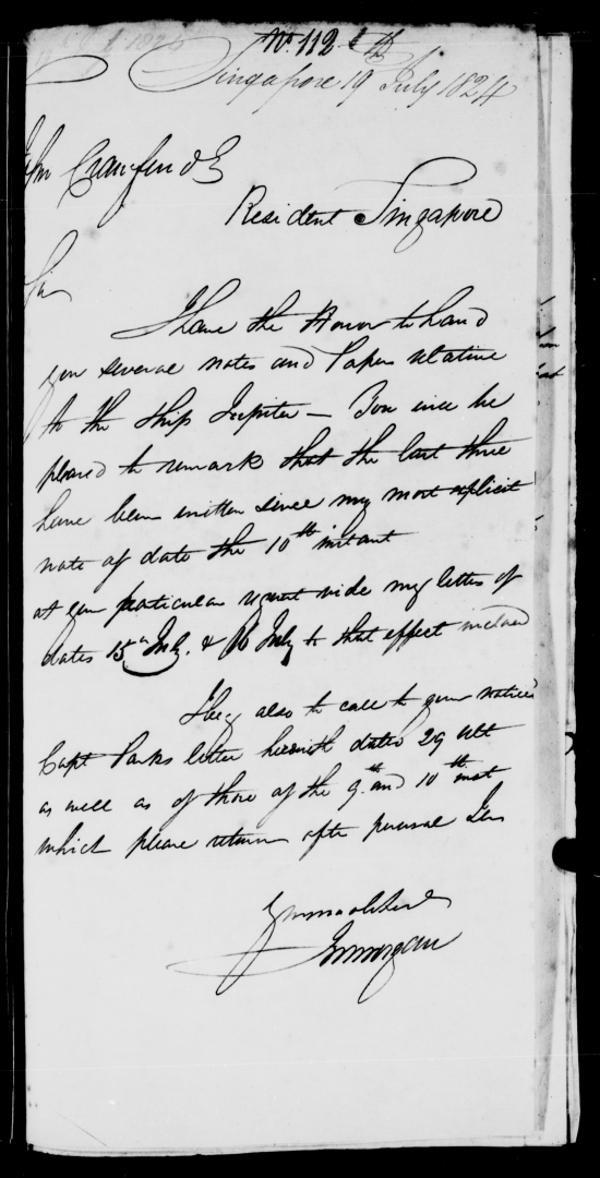 No. 112
Singapore 19 July 1824
John Crawfurd E
Resident Singapore
Sir
I have the Honor to hand
you several notes and Papers relative
to the Ship Jupiter — You will be
pleased to remark that the last three
have been written since my most explicit
note of date the 10th instant
at your particular request vide my letters of
dates 15th July. & 16 July to that effect inclosed
I beg also to call to your notice
Capt Parks letter herewith dated 29 Ult
as well as of those of the 9th and 10th inst
which please return after perusal I am
Your mo ob Serv
Morgan